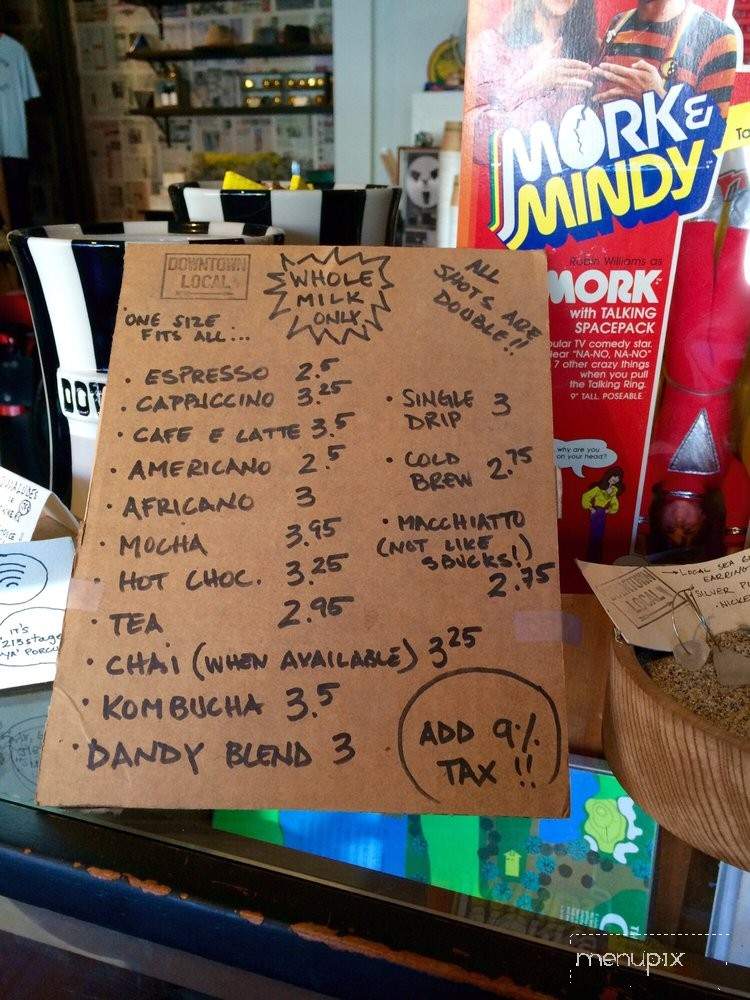 MORK &
MINDY
Robin Williams as
MORK
with TALKING
SPACEPACK
ular TV comedy star.
ear "NA-NO, NA-NO"
7 other crazy things
when you pull
the Talking Ring.
9" TALL. POSEABLE.
why are you
on your head?
DOWNTOWN
LOCAL
WHOLE
MILK
ONLY
ALL
SHOTS ARE
DOUBLE!!
ONE SIZE
FITS ALL...
• ESPRESSO 2.5
• CAPPUCCINO 3.25
• CAFE E LATTE 3.5
• AMERICANO 2.5
• AFRICANO 3
• MOCHA 3.95
• HOT CHOC. 3.25
• TEA 2.95
• CHAI (WHEN AVAILABLE) 3.25
• KOMBUCHA 3.5
• DANDY BLEND 3
• SINGLE
DRIP 3
• COLD
BREW 2.75
• MACCHIATTO
(NOT LIKE
SBUCKS!)
2.75
ADD 9%
TAX !!
IT'S
LOCAL SEA
EARRING
SILVER
DOWNTOWN
LOCAL
menupix